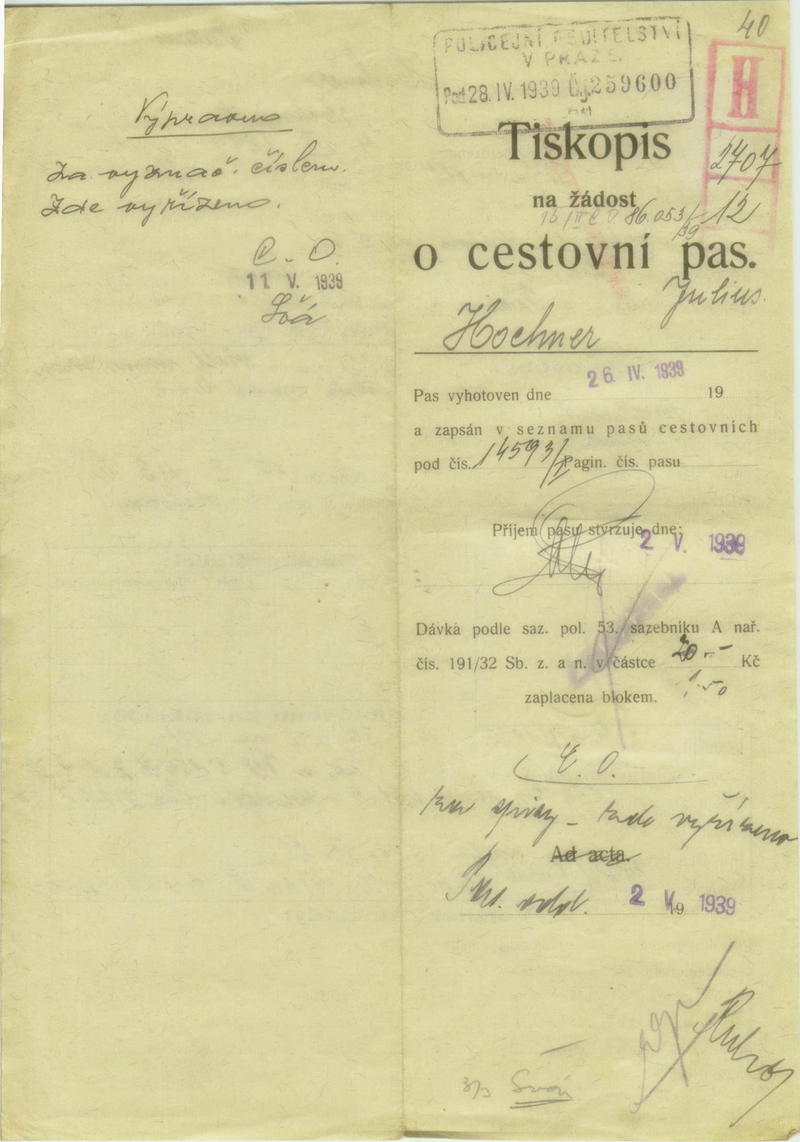 Výpravna
Za vyznač. číslem.
Zde vyřízeno.
C. O.
11 V. 1939
Švá
40
POLICEJNÍ ŘEDITELSTVÍ
V PRAZE.
Pod 28. IV. 1939 Č.j. 259600
H
2707
12
Tiskopis
na žádost
86.053/39
o cestovní pas.
Julius.
Hochner
26. IV. 1939
Pas vyhotoven dne 19
a zapsán v seznamu pasů cestovních
pod čís. 14593/I Pagin. čís. pasu
Příjem pasu stvrzuje dne:
2 V. 1939
Dávka podle saz. pol. 53. sazebníku A nař.
čís. 191/32 Sb. z. a n. v částce 20.- Kč
1.50
zaplacena blokem.
E. O.
zde vyřízeno
Ad acta.
2 V. 19 1939